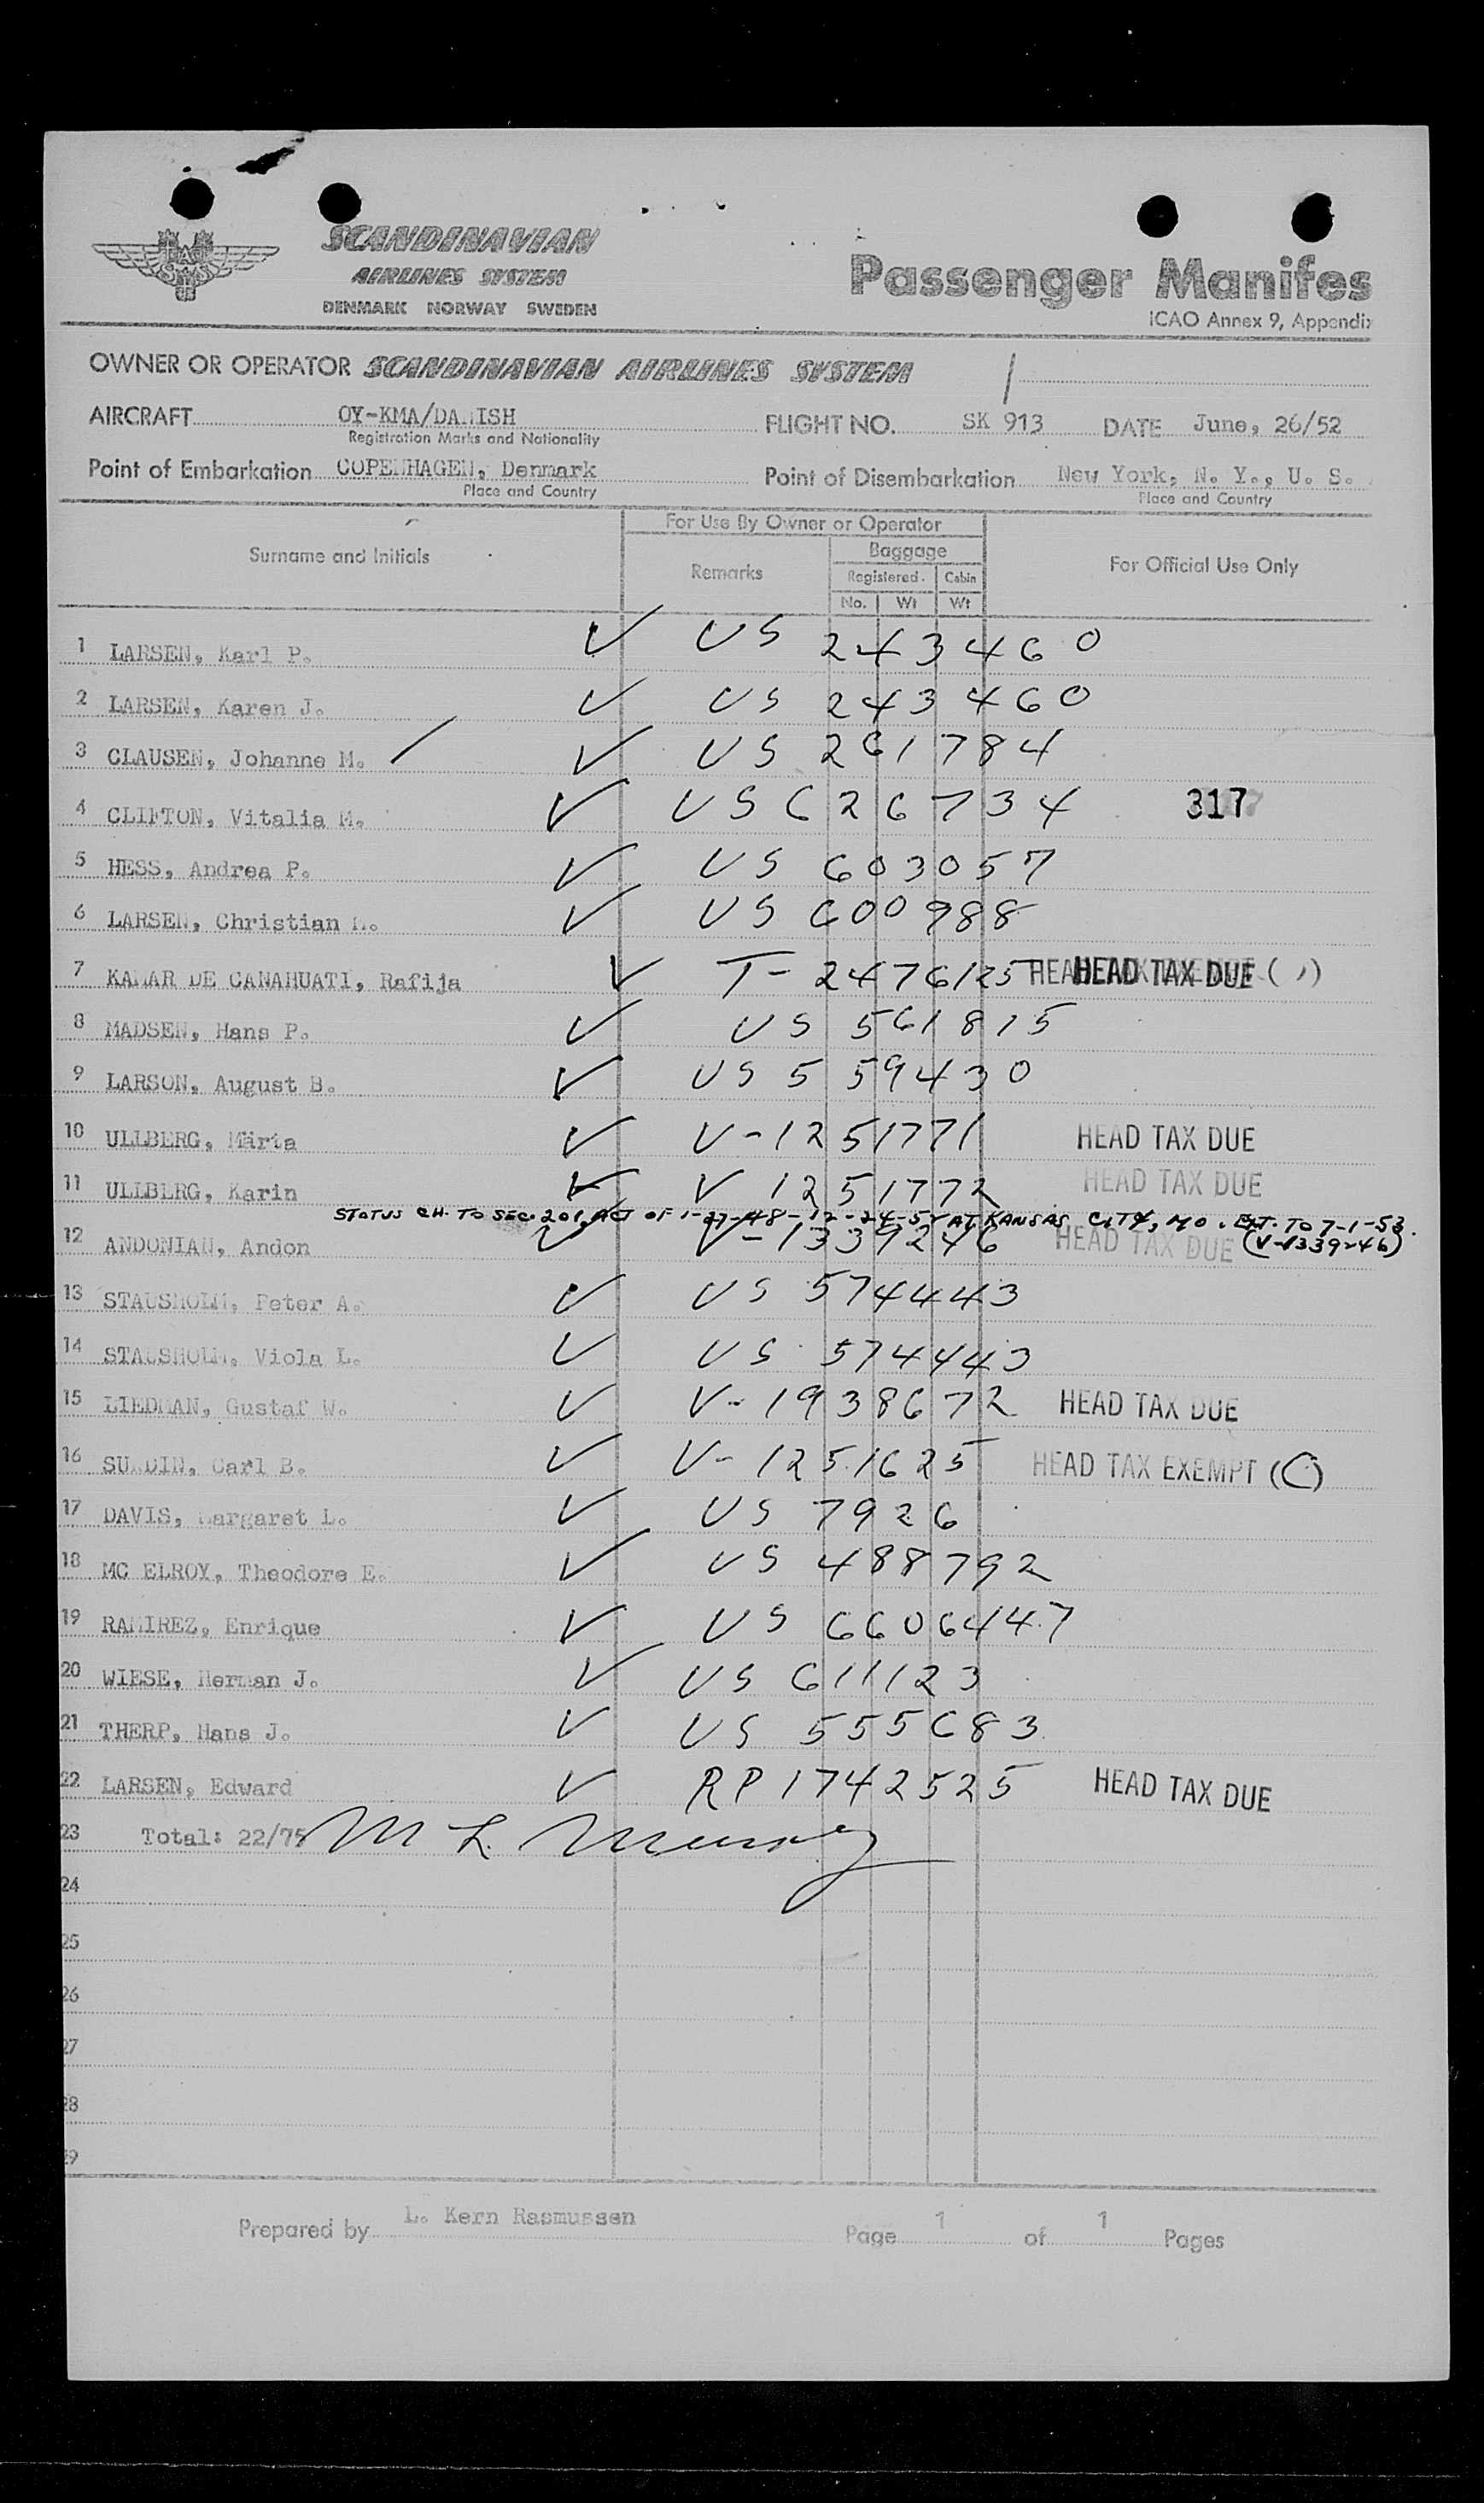 SCANDINAVIAN
AIRLINES SYSTEM
DENMARK NORWAY SWEDEN
Passenger Manifes
ICAO Annex 9, Appendix
OWNER OR OPERATOR SCANDINAVIAN AIRLINES SYSTEM
AIRCRAFT OY-KMA/DANISH FLIGHT NO. SK 913 DATE June, 26/52
Registration Marks and Nationality
Point of Embarkation COPENHAGEN, Denmark Point of Disembarkation New York, N. Y., U. S.
Place and Country Place and Country
For Use By Owner or Operator
Surname and Initials Remarks Baggage For Official Use Only
Registered. Cabin
No. Wt Wt
1 LARSEN, Karl P. ✓ US 243460
2 LARSEN, Karen J. ✓ US 243460
3 CLAUSEN, Johanne M. ✓ US 261784
4 CLIFTON, Vitalia M. ✓ US 626734 317
5 HESS, Andrea P. ✓ US 603057
6 LARSEN, Christian N. ✓ US 600988
7 KAMAR DE CANAHUATI, Rafija ✓ T- 2476125 HEAD TAX DUE ( )
8 MADSEN, Hans P. ✓ US 561815
9 LARSON, August B. ✓ US 559430
10 ULLBERG, Märta ✓ V-1251771 HEAD TAX DUE
11 ULLBERG, Karin ✓ V 1251772 HEAD TAX DUE
STATUS CH. TO SEC. 201, ACT OF 1-27-48-12-24-52 AT KANSAS CITY, MO. EXT. TO 7-1-53.
12 ANDONIAN, Andon ✓ V-1339246 HEAD TAX DUE (V-1339246)
13 STAUSHOLM, Peter A. ✓ US 574443
14 STAUSHOLM, Viola L. ✓ US 574443
15 LIEDMAN, Gustaf W. ✓ V-1938672 HEAD TAX DUE
16 SUNDIN, Carl B. ✓ V-1251625 HEAD TAX EXEMPT (C)
17 DAVIS, Margaret L. ✓ US 7926
18 MC ELROY, Theodore E. ✓ US 488792
19 RAMIREZ, Enrique ✓ US 6606447
20 WIESE, Herman J. ✓ US 611123
21 THERP, Hans J. ✓ US 555683
22 LARSEN, Edward ✓ RP 1742525 HEAD TAX DUE
23 Total: 22/75 M L Murray
24
25
26
27
28
29
Prepared by L. Kern Rasmussen Page 1 of 1 Pages